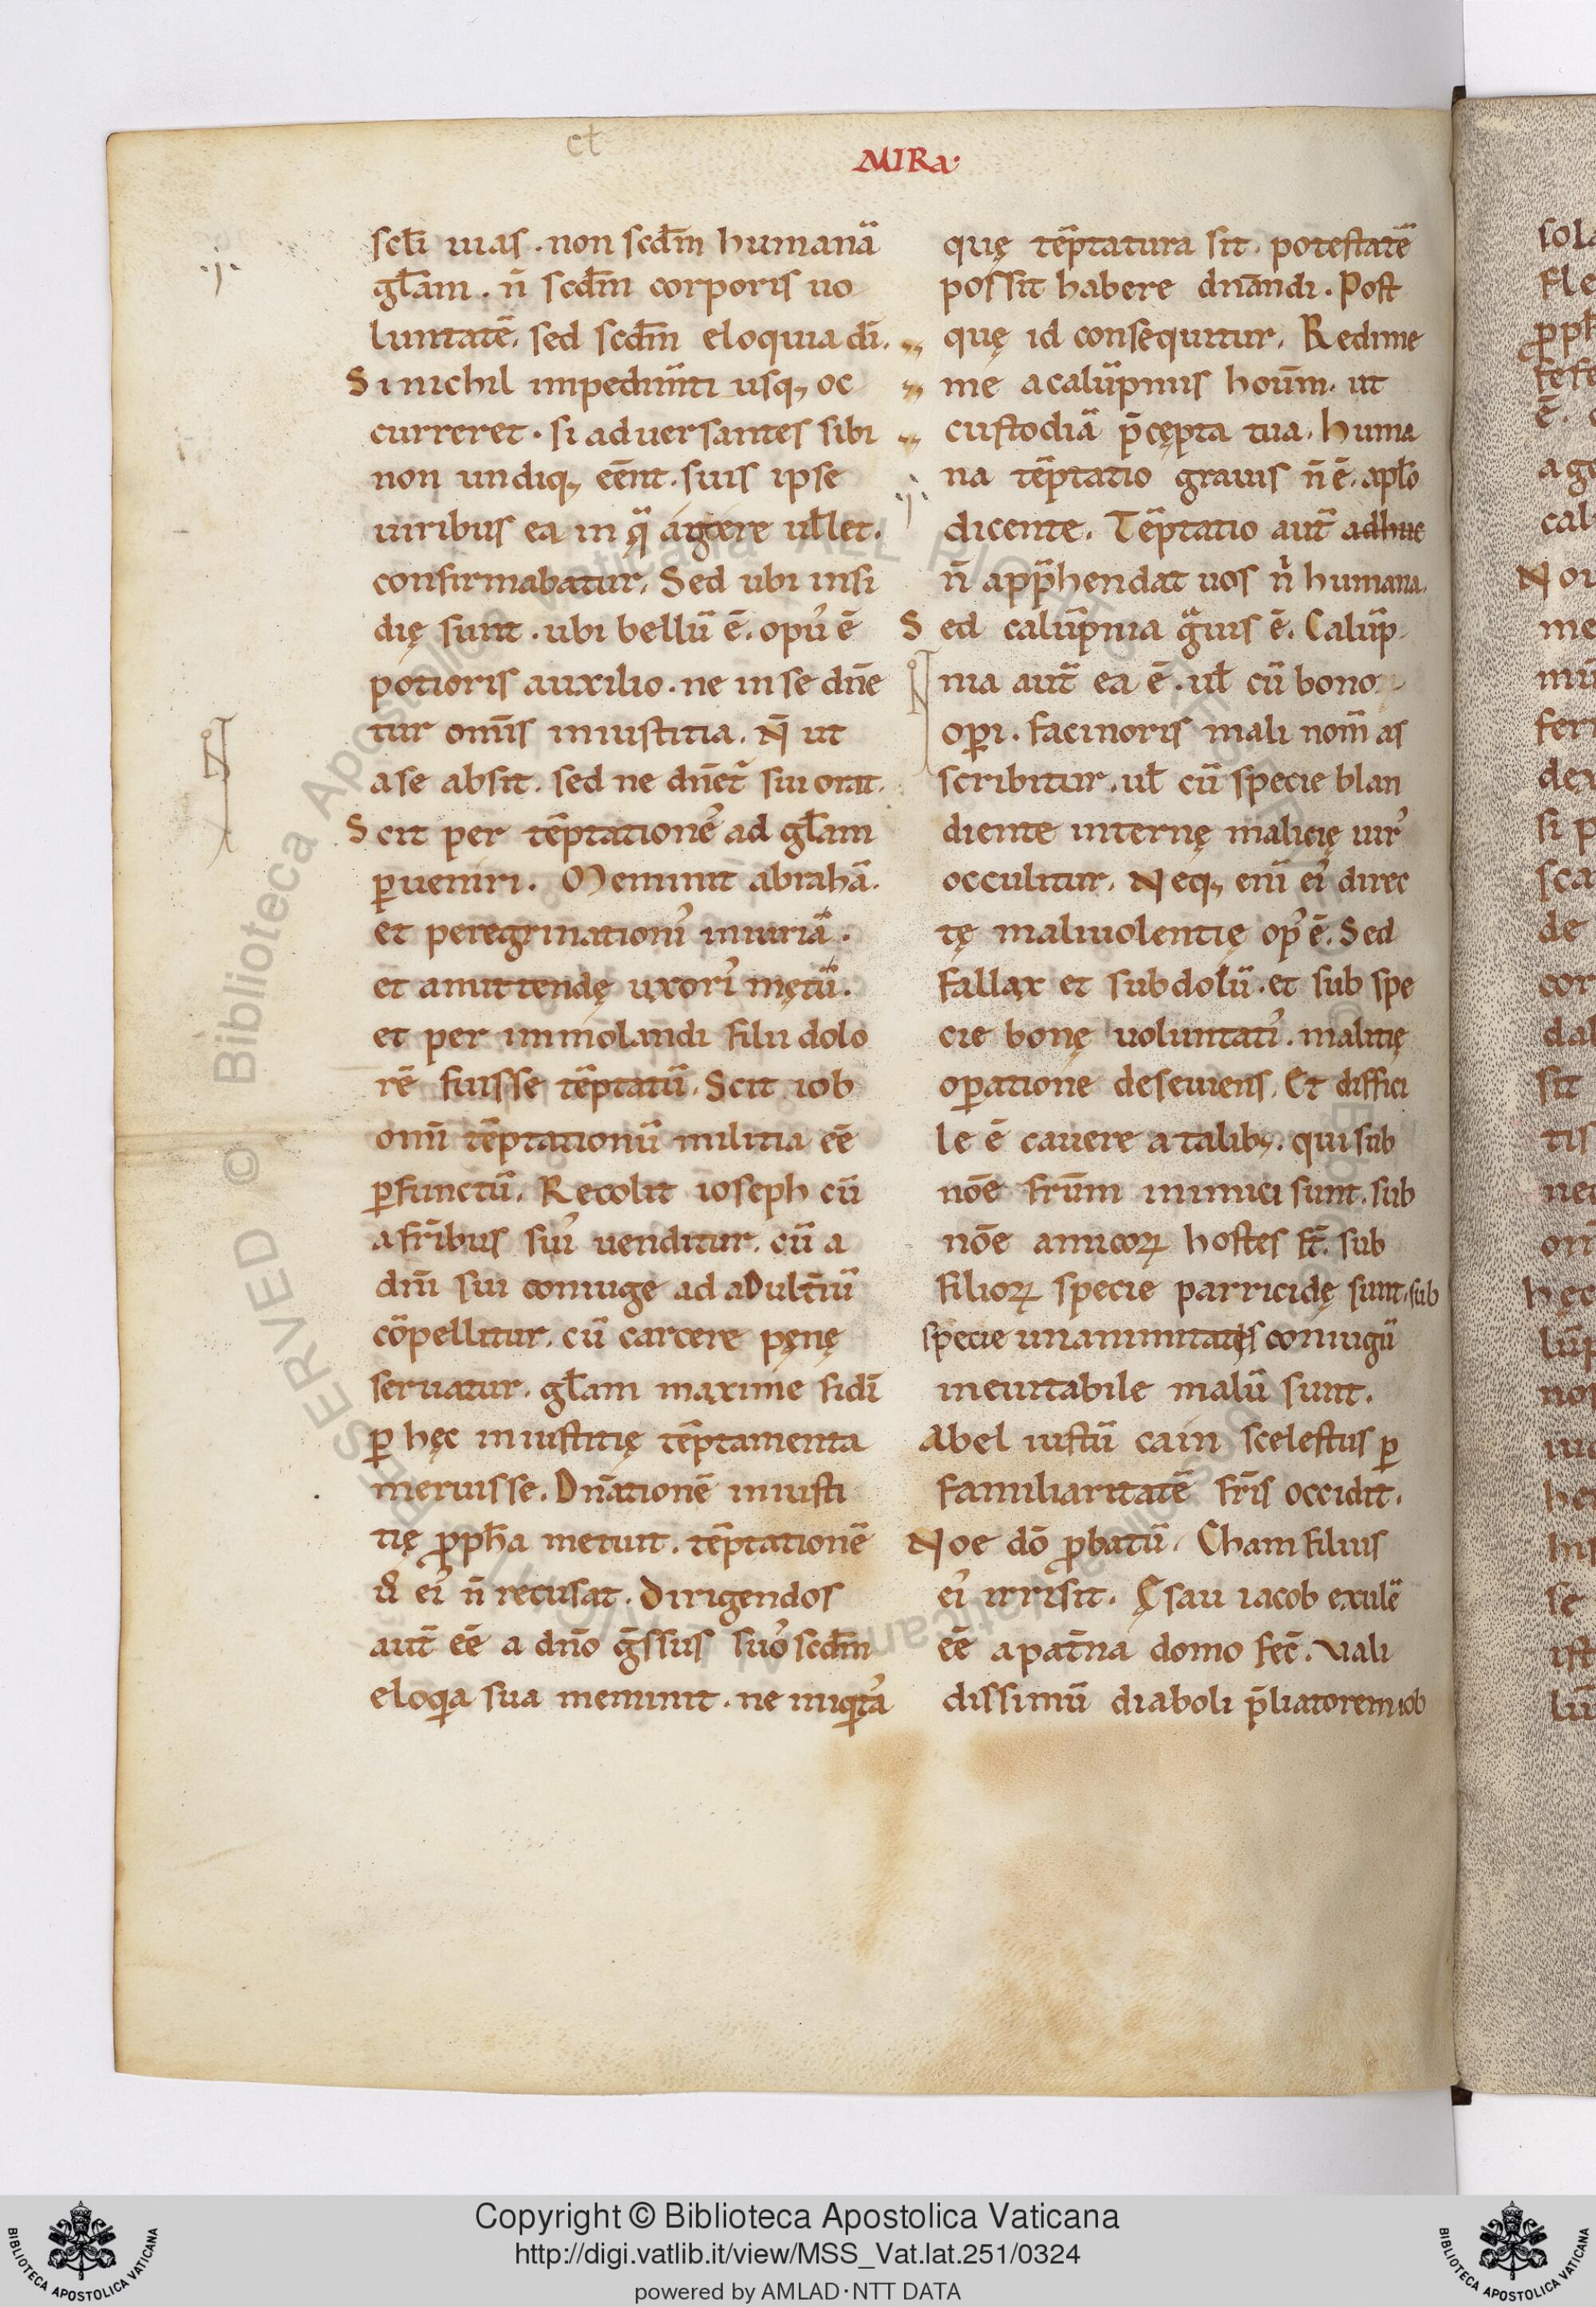 ct
MIRa·
scl̄i uias . non scd̄m humanā
gl̄am . n̄ scd̄m corporis uo
luntatē. sed scd̄m eloquia dī.
Si nichil impediṁti usq; oc
curreret . si aduersantes sibi
non undiq; eēnt . suis ipse
uiribus ea in q̄ agere uellet.
confirmabatur. Sed ubi insi
dię sunt . ubi bellū ē. opus ē
potioris auxilio . ne in se dn̄e
tur omīs iniustitia. N̄ ut
a se absit . sed ne dn̄et̄ sui orat.
Scit per tēptationē ad gl̄am
ꝑueniri. Meminit abrahā.
et peregrinationis iniuriā .
et amittendę uxoris mętū .
et per immolandi filii dolo
rē fuisse tēptatū. Scit iob
omī tēptationū militia eē
ꝑfunctū. Recolit ioseph cū
a frībus suis uenditur. cū a
dnī sui coniuge ad adult̄iū
cōpellitur. cū carcere pęnę
seruatur. gl̄am maxime fidī
ꝑ hęc iniustitię tēptamenta
meruisse. Dn̄ationē iniusti
tię ꝓph̄a metuit . tēptationē
ū ei' n̄ recusat . Dirigendos
aut̄ eē a dn̄o ḡssus suos scd̄m
eloq̄a sua meminit . ne iniq̄tas
quę tēptatura sit. potestatē
possit habere dn̄andi . Post
quę id consequitur. Redime
me a calūpniis hoūm. ut
custodiā p̄cępta tua. huma
na tēptatio grauis n̄ ē. apl̄o
dicente. Tēptatio aut̄ adhuc
n̄ app̄hendat uos n̄ humana.
Sed calūpnia ḡuis ē. Calūp
nia aut̄ ea ē . ul̄ cū bono
oꝑi . facinoris mali nom̄ as
scribitur . ul̄ cū specie blan
diente internę malicię uir'
occulitur. Neq; enī ei' direc
tę maliuolentię op' ē. Sed
fallax et subdolū . et sub spe
cie bonę uoluntatis . malitię
oꝑatione deseuiens. Et diffici
le ē cauere a talib; . qui sub
nōe frūm inimici sunt. sub
nōe amicoꝝ hostes st̄. sub
filioꝝ specie parricidę sunt. sub
specie unanimitatis coniugū
ineuitabile malū sunt.
Abel iustū cain scelestus ꝑ
familiaritatē frīs occidit.
Noe dō ꝓbatū. Cham filius
ei' irrisit. Ęsau iacob exulē
eē a pat̄na domo fec̄. Vali
dissimū diaboli p̄liatorem iob
Copyright © Biblioteca Apostolica Vaticana
http://digi.vatlib.it/view/MSS_Vat.lat.251/0324
powered by AMLAD·NTT DATA